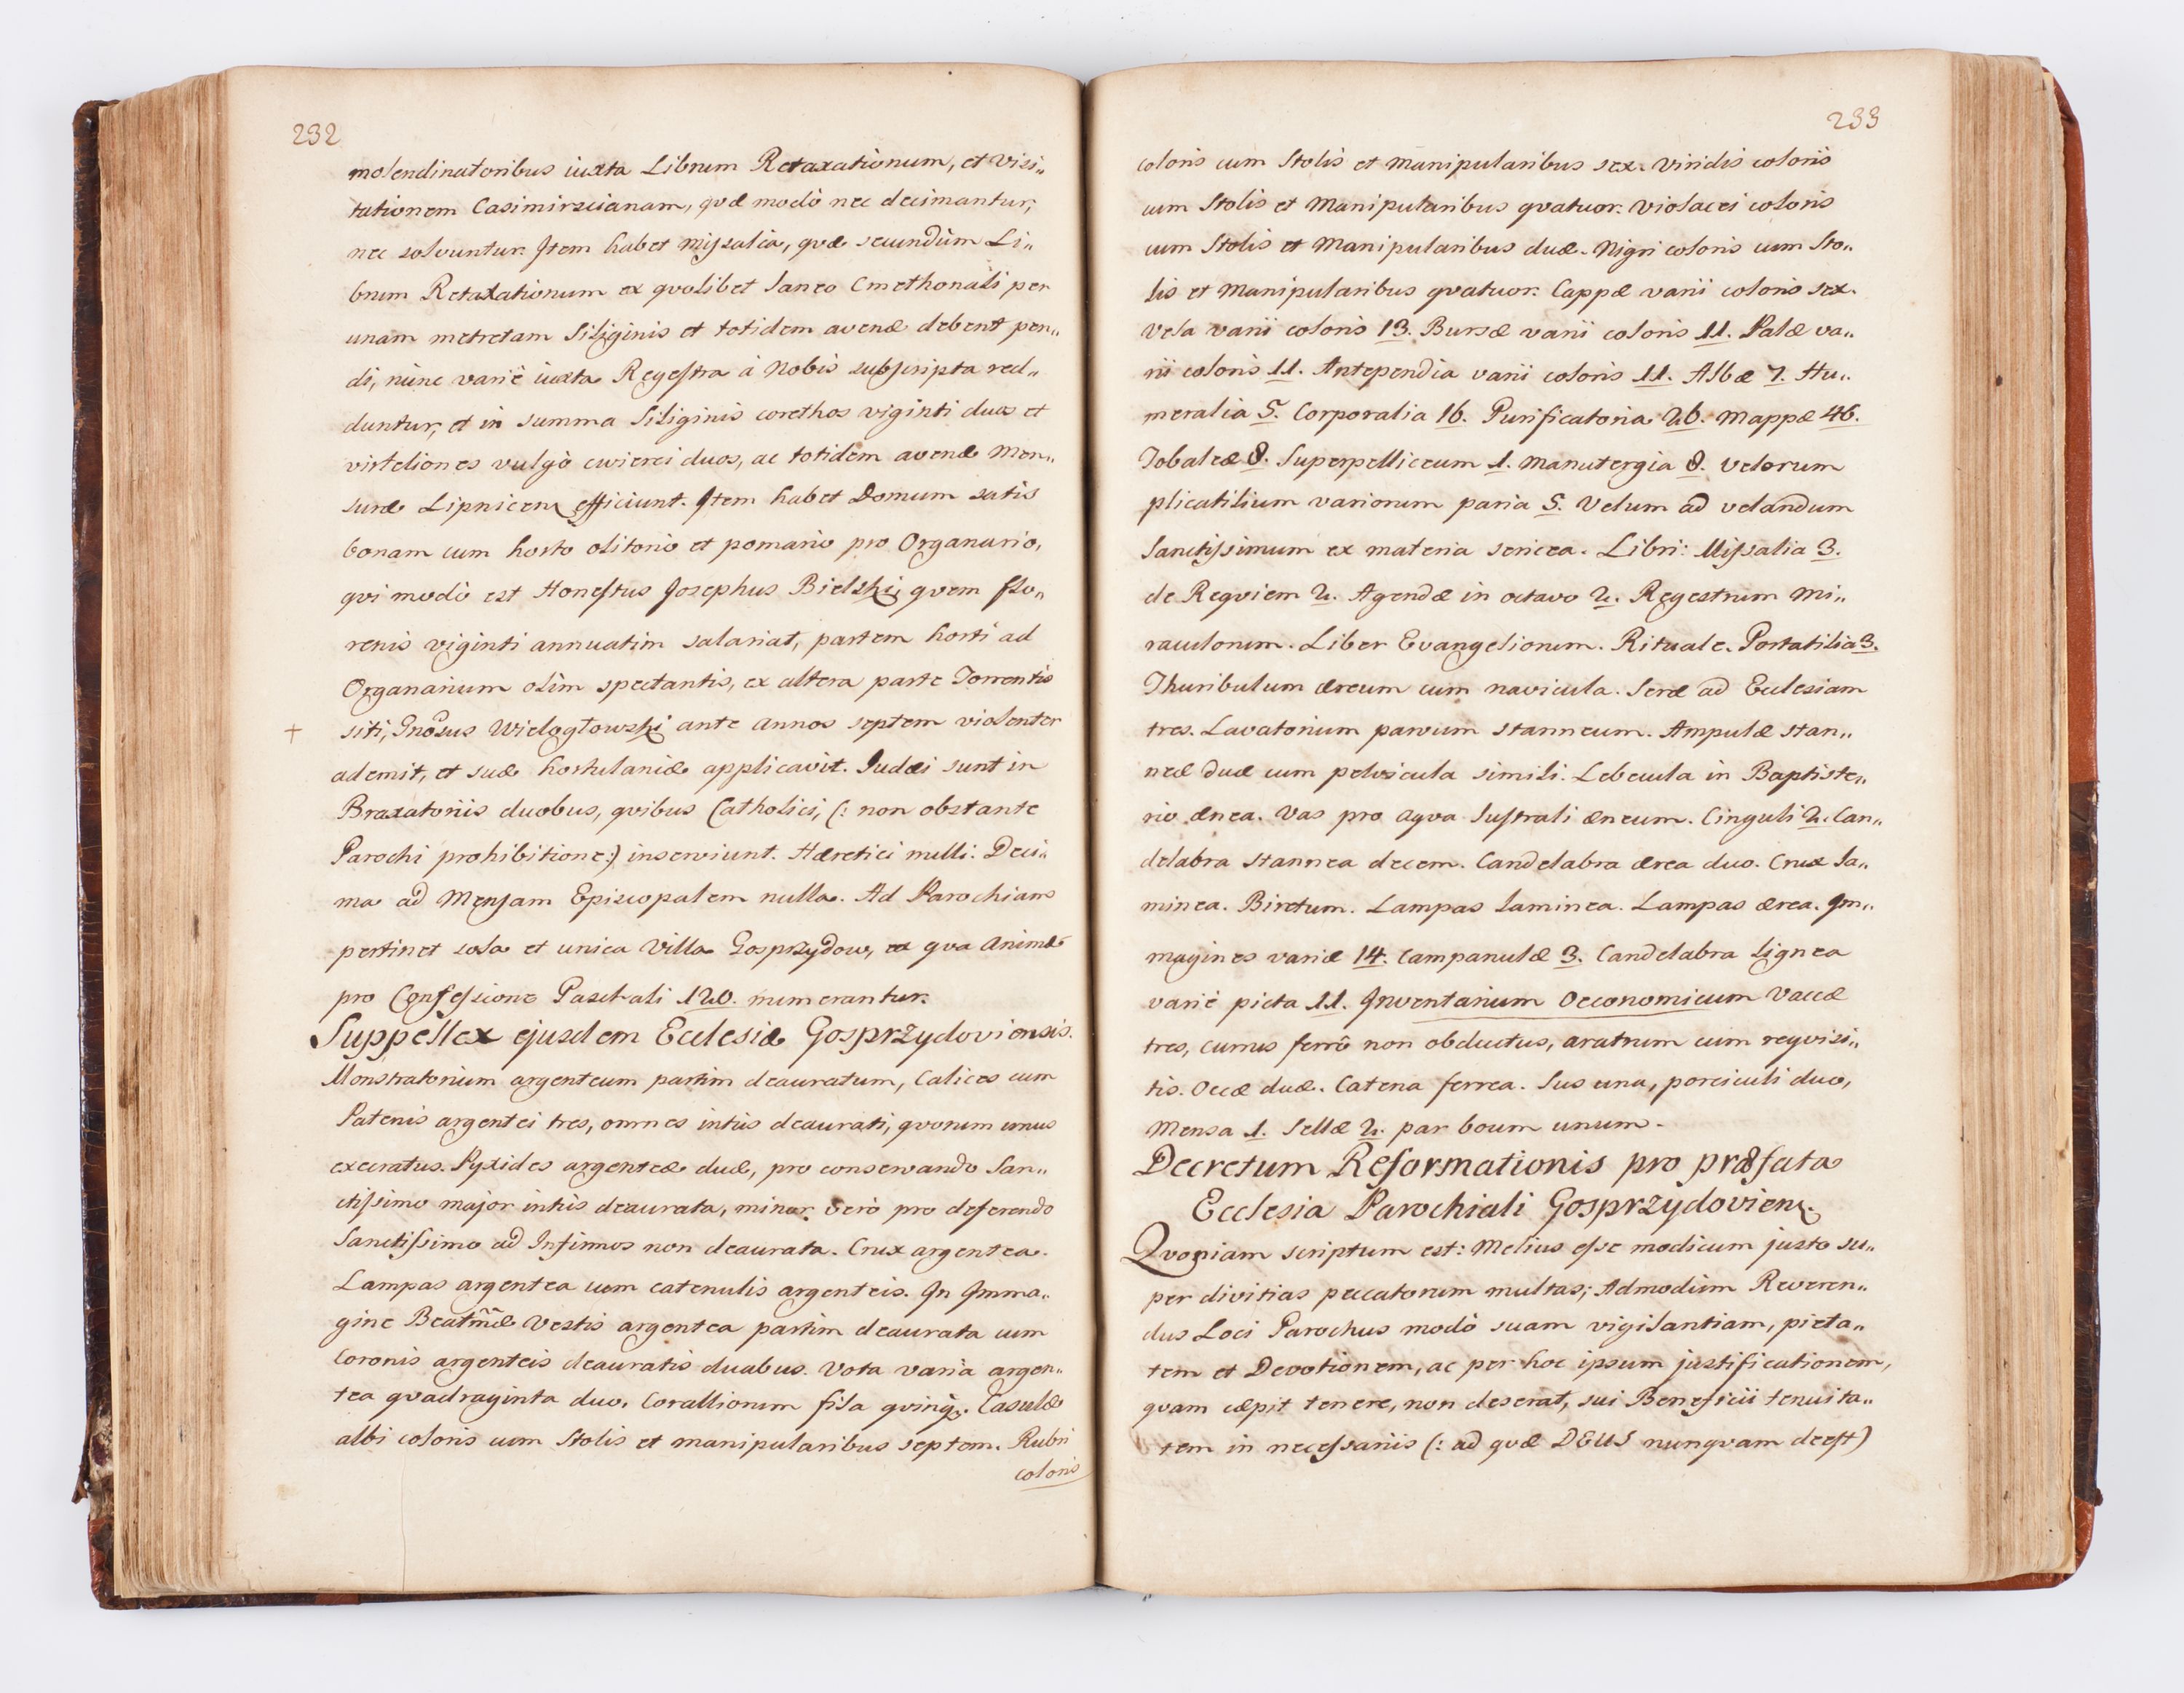 232
molendinatoribus iuxta Librum Retaxationum, et Visi„
tationem Casimirscianam, qvæ modò nec decimantur,
nec solvuntur. Item habet Missalia, qvæ secundùm Li„
brum Retaxationum ex qvolibet laneo Cmethonali per
unam metretam Siliginis et totidem avenæ debent pen„
di, nunc variè iuxta Regestra à Nobis subscripta red„
duntur, et in summa Siliginis corethos viginti duos et
virteliones vulgò cwierci duos, ac totidem avenæ Men„
suræ Lipnicen efficiunt. Item habet Domum satis
bonam cum horto olitorio et pomario pro Organario,
qvi modò est Honestus Josephus Bielski, qvem flo„
renis viginti annuatim salariat, partem horti ad
Organarium olim spectantis, ex altera parte Torrentis
+ siti, Gnosus Wielogłowski ante annos septem violenter
ademit, et suæ hortulaniæ applicavit. Judæi sunt in
Braxatoriis duobus, qvibus Catholici, (: non obstante
Parochi prohibitione:) inserviunt. Hæretici nulli. Deci„
ma ad Mensam Episcopalem nulla. Ad Parochiam
pertinet sola et unica Villa Gosprzydow, ex qva Animæ
pro Confessione Paschali 120. numerantur.
Suppellex ejusdem Ecclesiæ Gosprzydoviensis.
Monstratorium argenteum partim deauratum, Calices cum
Patenis argentei tres, omnes intùs deaurati, qvorum unus
execratus. Pyxides argenteæ duæ, pro conservando San„
ctissimo major intùs deaurata, minor verò pro deferendo
Sanctissimo ad Infirmos non deaurata. Crux argentea.
Lampas argentea cum catenulis argenteis. In Imma„
gine Beatmæ Vestis argentea partim deaurata cum
Coronis argenteis deauratis duabus. Vota varia argen„
tea qvadraginta duo. Corallionum fila qvinq;. Casulæ
albi coloris cum Stolis et manipularibus septem. Rubri
coloris
233
coloris cum Stolis et manipularibus sex. Viridis coloris
cum Stolis et Manipularibus qvatuor. Violacei coloris
cum Stolis et Manipularibus duæ. Nigri coloris cum Sto„
lis et Manipularibus qvatuor. Cappæ varii coloris sex.
Vela varii coloris 13. Bursæ varii coloris 11. Palæ va„
rii coloris 11. Antependia varii coloris 11. Albæ 7. Hu„
meralia 5. Corporalia 16. Purificatoria 26. Mappæ 46.
Tobaleæ 8. Superpelliceum 1. Manutergia 8. Velorum
plicatilium variorum paria 5. Velum ad velandum
Sanctissimum ex materia sericea. Libri: Missalia 3.
de Reqviem 2. Agendæ in octavo 2. Regestrum Mi„
raculorum. Liber Evangeliorum. Rituale. Portatilia 3.
Thuribulum æreum cum navicula. Seræ ad Ecclesiam
tres. Lavatorium parvum stanneum. Ampulæ stan„
neæ duæ cum pelvicula simili. Lebecula in Baptiste„
rio ænea. Vas pro aqva lustrali æneum. Cinguli 2. Can„
delabra stannea decem. Candelabra ærea duo. Crux la„
minea. Biretum. Lampas laminea. Lampas ærea. Im„
magines variæ 14. Campanulæ 3. Candelabra lignea
variè picta 11. Inventarium Oeconomicum Vaccæ
tres, currus ferrô non obductus, aratrum cum reqvisi„
tis. Occæ duæ. Catena ferrea. Sus una, porciculi duo,
Mensa 1. Sellæ 2. par boum unum.
Decretum Reformationis pro præfata
Ecclesia Parochiali Gosprzydovien.
Qvoniam scriptum est: Melius esse modicum justo su„
per divitias peccatorum multas; Admodùm Reveren„
dus Loci Parochus modò suam vigilantiam, pieta„
tem et Devotionem, ac per hoc ipsum justificationem,
qvam cæpit tenere, non deserat, sui Beneficii tenuita„
tem in necessariis (: ad qvæ DEUS nunqvam deest)